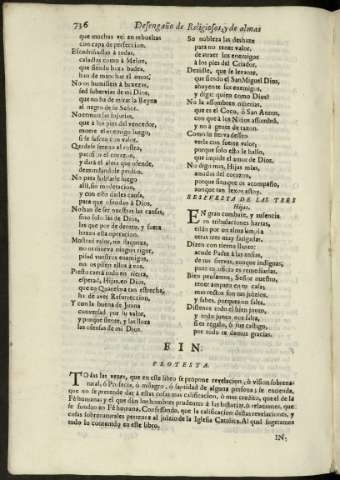 736 Desengaño de Religiosos, y de almas
que muchas vezes embositas
con capa de perfeccion.
Escudriñadlas à todas,
calad como à Melon,
que siendo buen badea,
han de manchar al amor.
No os humilleis à bruxeres,
sed soberuias de mi Dios,
que no ha de mirar la Reyna
al negro de su Señor.
No temais las injurias,
que à los pies del vencedor,
muere el enemigo luego,
si se sufren con valor.
Quedese sereno el rostro,
pacifico el coraçon,
y dará el alma que ofende,
demandandole perdon.
No para hablarle luego
assi, sin moderacion,
y con esso darles causa,
para que ofendan à Dios.
No han de ser nuestras las causas,
sino solo las de Dios,
las que por de dentro, y fuera
hagan esta operacion.
Mostrad valor, no flaqueza,
no os mueva ningun rigor,
pisad vuestros enemigos,
no os pisen ellos à vos.
Presto cerrà todo en tierra,
esperad, Hijas, en Dios,
que en Quaresma tan estrecha,
ha de aver Resurreccion.
Y con la buena de Juana
conversad, por su valor,
y porque siente, y las llora
las ofensas de mi Dios.
Su nobleza las deshaze
para no tener valor,
de atraer los enemigos
à los pies del Criador.
Dezidle, que se levante,
que siendo el San Miguel Dios,
ahuyente los enemigos,
y diga: quien como Dios?
No la assombren niñerias,
que es el Coco, ò San Anton,
con que à los niños assombra,
y no à gente de razon.
Como la sierva dessea
verla con fuerte valor,
porque solo esto le hallo,
que impide el amor de Dios.
No digo mas, Hijas mias,
aldas del coraçon,
porque siempre os acompaño,
aunque tan lexos estoy.
RESPUESTA DE LAS TRES
Hijas.
EN gran combate, y ausencia
en tribulaciones hartas,
estàn por su alma,
estas tres muy fatigadas.
Dizen con tierno llanto:
acude Padre à las ansias,
de tus siervas, aunque indignas,
pues tu ausencia remediarlas.
Bien prestamos, Señor nuestro,
tener amparo en tu casa,
mas rectos son tus juizios,
y sabes, porque nos faltas.
Disponlo todo el bien junto,
y todo junto nos falta,
si es regalo, ò sus castigo,
por todo te damos gracias.
FIN.
PROTESTA.
TOdas las vezes, que en este libro se propone revelacion, ò vision sobrenatural, ò Profecia, ò milagro, ò santidad de alguna persona; se entienda,
que no se pretende dar à estas cosas mas calificacion, ò mas credito, que el de la
Fè humana; y el que dàn los hombres prudentes à las historias, ò relaciones, que
se fundan en Fè humana. Confessando, que la calificacion destas revelaciones, y
cosas sobrenaturales pertenece al juizio de la Iglesia Catolica. Al qual sugetamos
todo lo contenido en este libro.
IN-